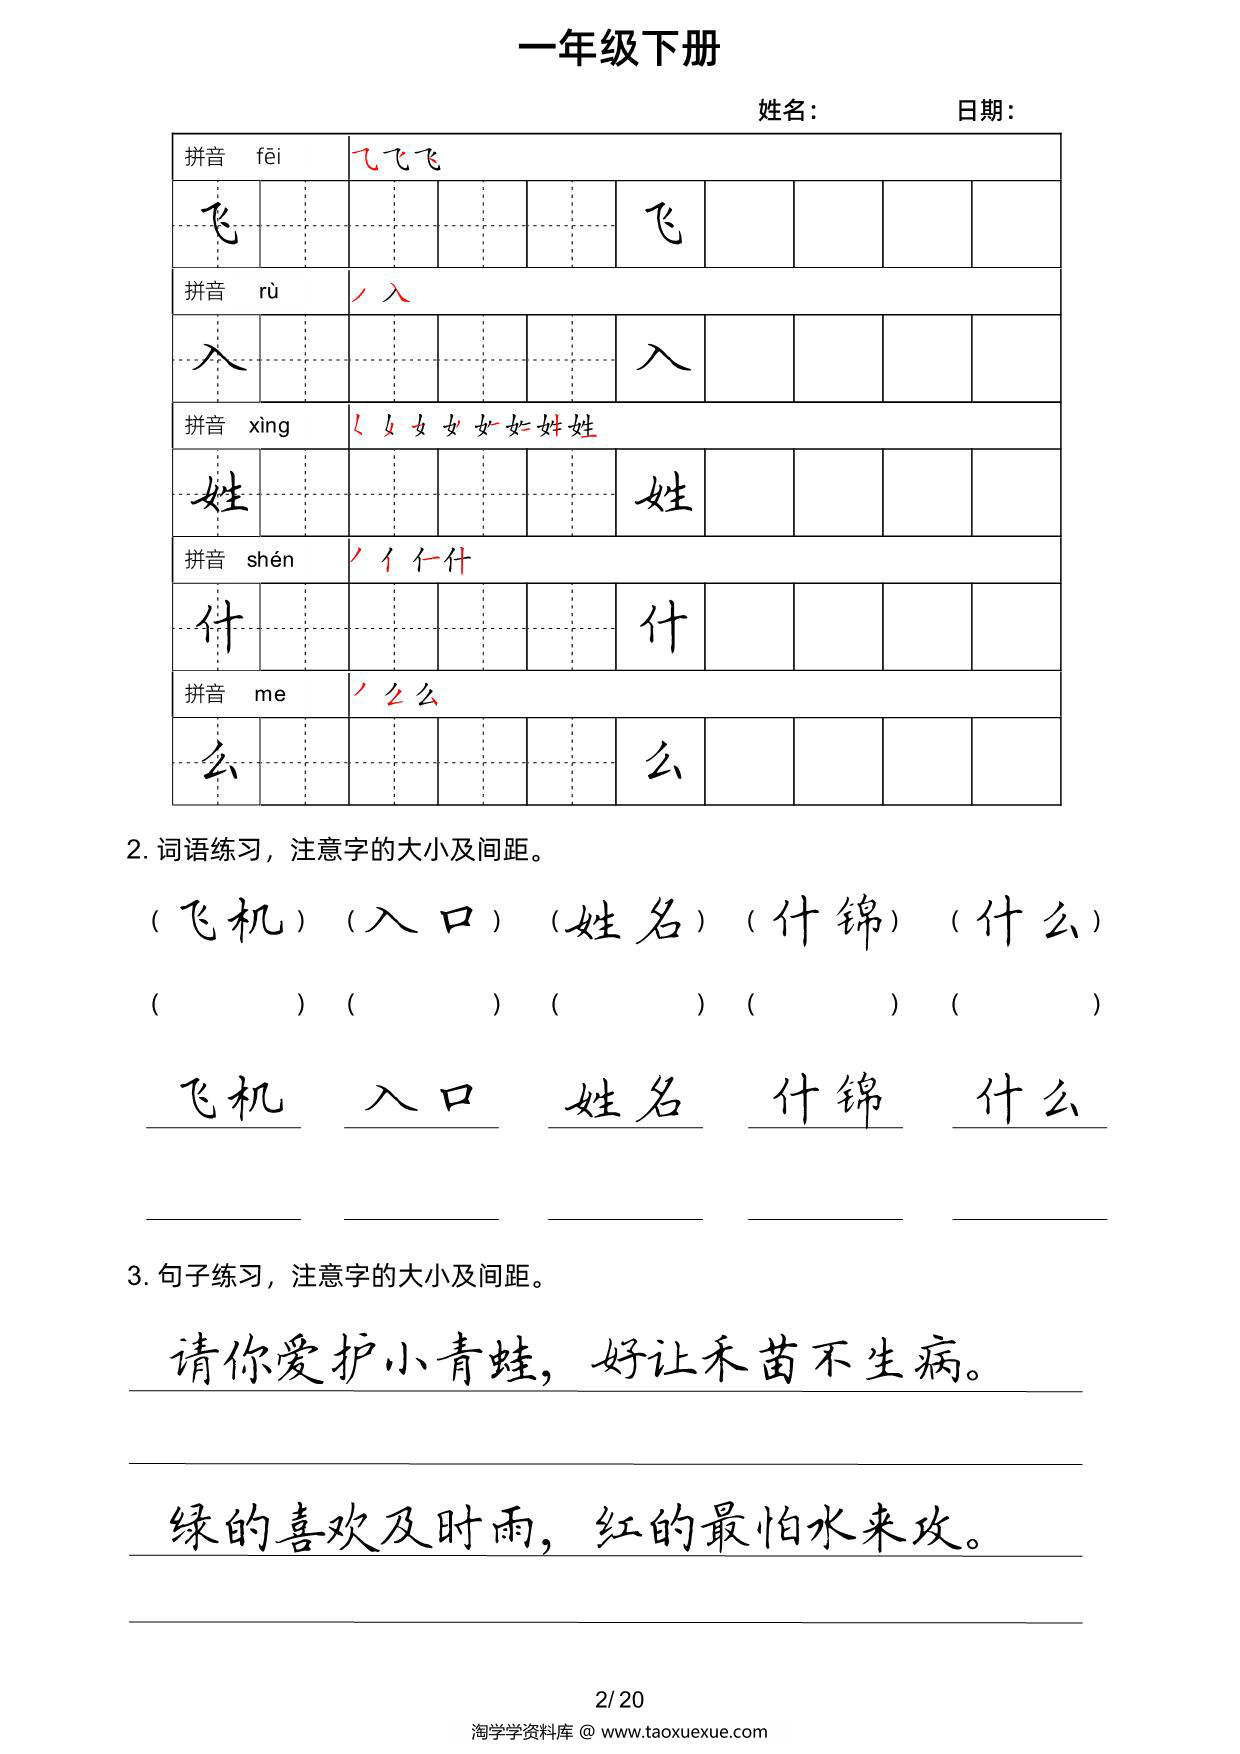 一年级下册
姓名： 日期：
拼音 fēi 飞
飞 飞
拼音 rù 丿 入
入 入
拼音 xìng 女 姓
姓 姓
拼音 shén 丿 亻 什
什 什
拼音 me 丿 么
么 么
2. 词语练习，注意字的大小及间距。
（飞机）（入口）（姓名）（什锦）（什么）
（ ）（ ）（ ）（ ）（ ）
飞机 入口 姓名 什锦 什么
3. 句子练习，注意字的大小及间距。
请你爱护小青蛙，好让禾苗不生病。
绿的喜欢及时雨，红的最怕水来攻。
2/ 20
淘学学资料库 @ www.taoxuexue.com